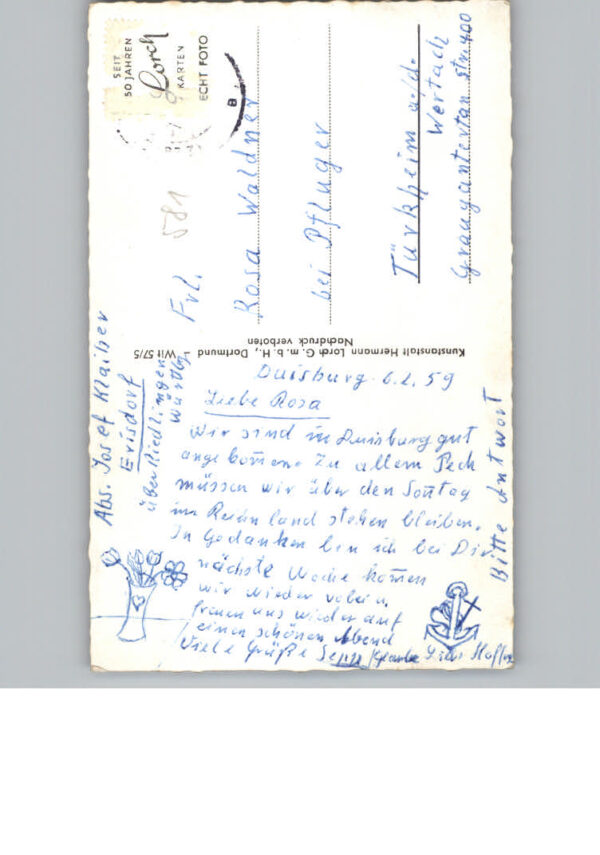 SEIT
50 JAHREN
Lorch
KARTEN
ECHT FOTO
581
Frl.
Rosa Waldner
bei Pfluger
Türkheim a/d.
Wertach
Str. 400
Kunstanstalt Hermann Lorch G. m. b. H., Dortmund Wit 57/5
Nachdruck verboten
Abs. Josef Klaiber
Erisdorf
über Riedlingen
Württbg
Duisburg 6.2.59
Liebe Rosa
Wir sind in Duisburg gut
angekomen. Zu allem Pech
müssen wir über den Sontag
im Rein land stehen bleiben.
In Gedanken bin ich bei Dir
nächste Woche komen
wir wieder
freuen uns wieder auf
einen schönen Abend
Viele Grüße Sepp
Bitte Antwort